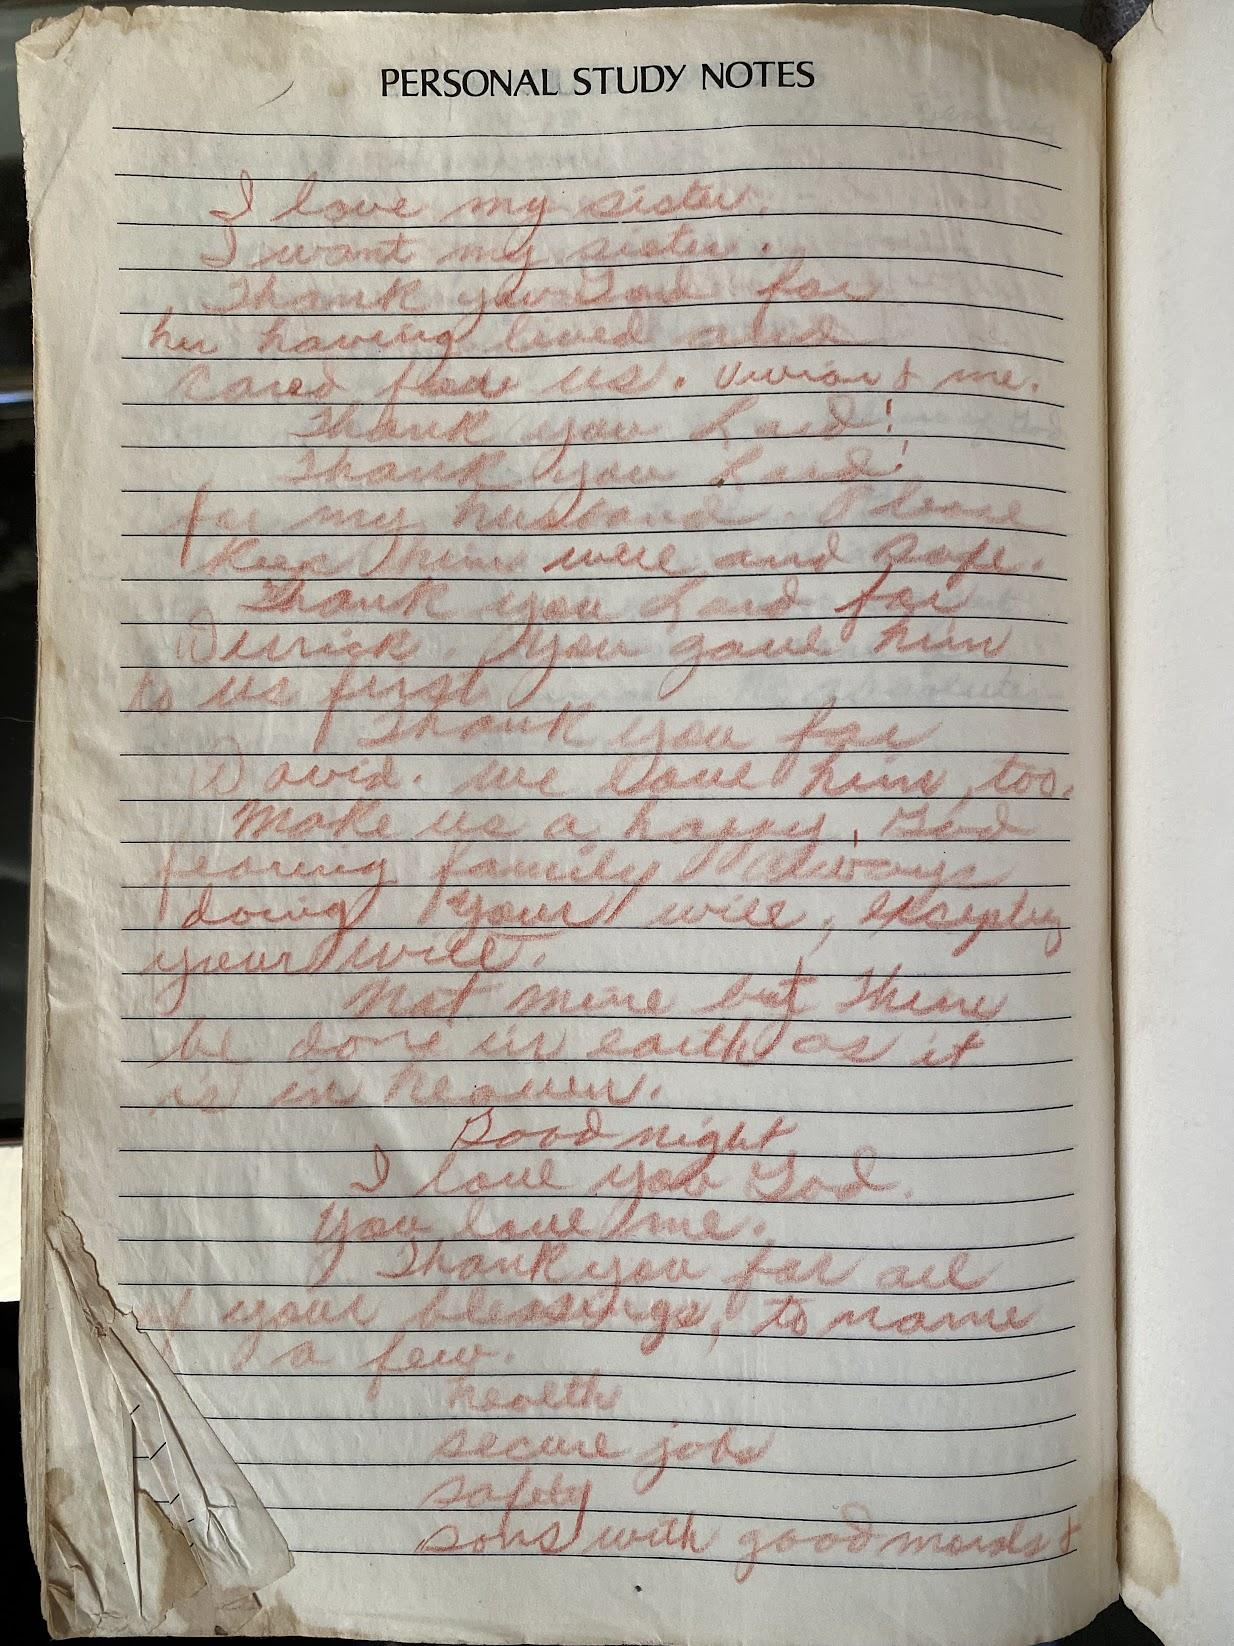 PERSONAL STUDY NOTES
I love my sister.
I want my sister.
Thank you God for
her having lived and
cared for us. Vivian & me.
Thank you Lord!
Thank you Lord!
for my husband. Please
keep him well and safe.
Thank you Lord for
Derrick. You gave him
to us first
Thank you for
David. We love him, too.
Make us a happy, God
fearing family always
doing your will,
your will.
Not mine but Thine
be done in earth as it
is in heaven.
Good night
I love you God.
You love me.
Thank you for all
of your blessings, to name
a few.
health
secure jobs
safety
sons with good morals &